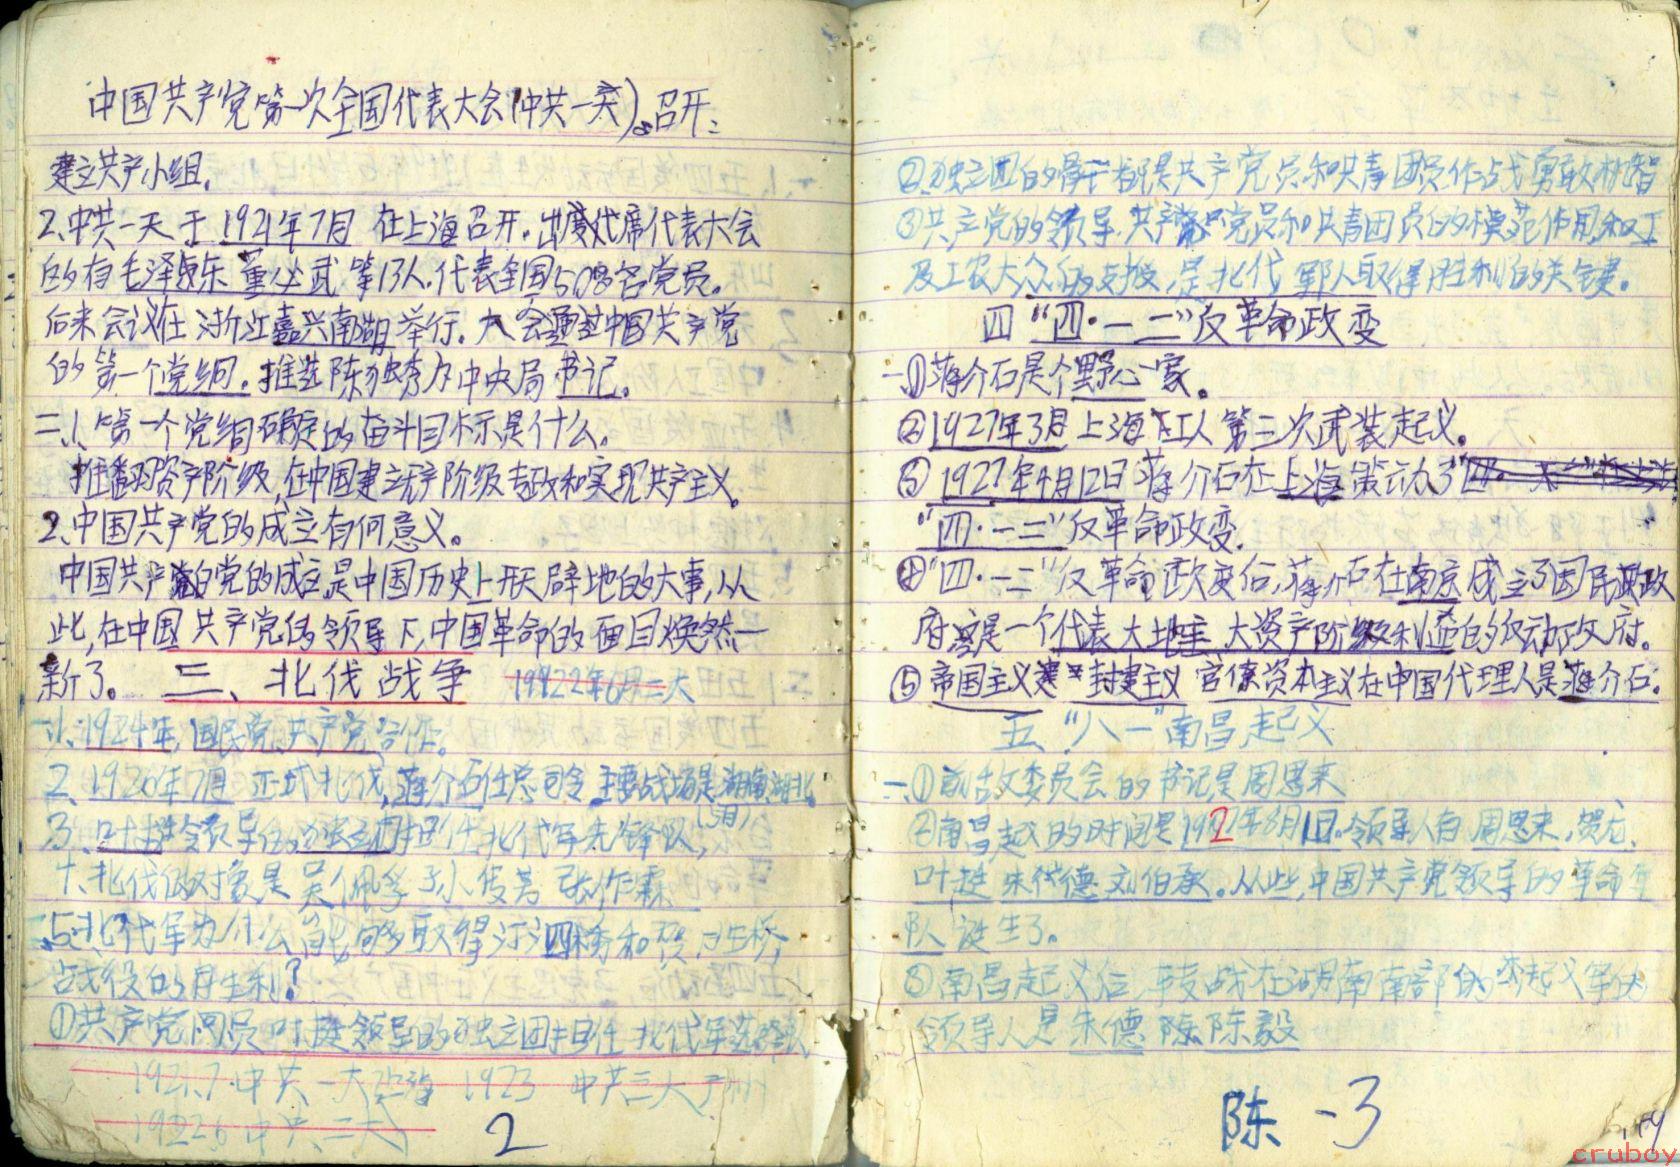 中国共产党第一次全国代表大会(中共一大)。召开:
建立共产小组,
2、中共一大于1921年7月在上海召开。出席代席代表大会
的有毛泽东 董必武等13人。代表全国50多名党员。
后来会议在浙江嘉兴南湖举行。大会通过中国共产党
的第一个党纲。推选陈独秀为中央局书记。
二、1、第一个党纲确定的奋斗目标是什么。
推翻资产阶级,在中国建立无产阶级专政和实现共产主义。
2、中国共产党的成立有何意义。
中国共产党的成立,是中国历史上开天辟地的大事,从
此,在中国共产党的领导下,中国革命的面目焕然一
新了。 三、北伐战争 1922年6月二大
一、1、1924年,国民党、共产党合作。
2、1926年7月 正式北伐,蒋介石任总司令 主要战场是湖南、湖北。
3、叶挺领导任的独立团担任北伐军先锋队, (5月)
十、北伐的对象是吴佩孚 孙传芳 张作霖
5、北伐军为什么能够取得汀泗桥和贺胜桥
战役的胜利?
①共产党员叶挺领导的独立团担任北伐军先锋队
1921.7.中共一大上海 1923 中共三大广州
1922.6 中共二大
2
②独立团的骨干都是共产党员和共青团员作战勇敢机智
③共产党的领导、共产党党员和共青团员的模范作用和工
及工农大众的支援,是北伐军取得胜利的关键。
四 “四·一二”反革命政变
一、①蒋介石是个野心家。
②1927年3月上海工人第三次武装起义。
③1927年4月12日蒋介石在上海策动了
“四·一二”反革命政变.
④“四·一二”反革命政变后,蒋介石在南京成立了国民政
府,这是一个代表大地主、大资产阶级利益的反动政府。
⑤帝国主义 封建主义 官僚资本主义在中国代理人是蒋介石。
五、“八一”南昌起义
一、①前敌委员会的书记是周恩来
②南昌起义的时间是1927年8月1日。领导人有周恩来、贺龙、
叶挺 朱德 刘伯承。从此,中国共产党领导的革命军
队诞生了。
③南昌起义后,转战在湖南南部的起义军的
领导人是朱德 陈毅
陈 -3
cruboy